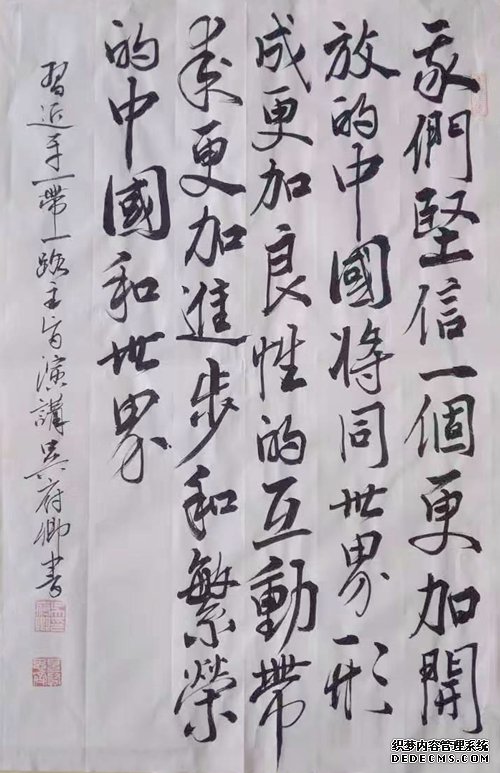 我們堅信一個更加開
放的中國将同世界形
成更加良性的互動帶
来更加進步和繁榮
的中國和世界
習近平一帶一路主旨演講吴府卿書
织梦内容管理系统
DEDECMS.COM